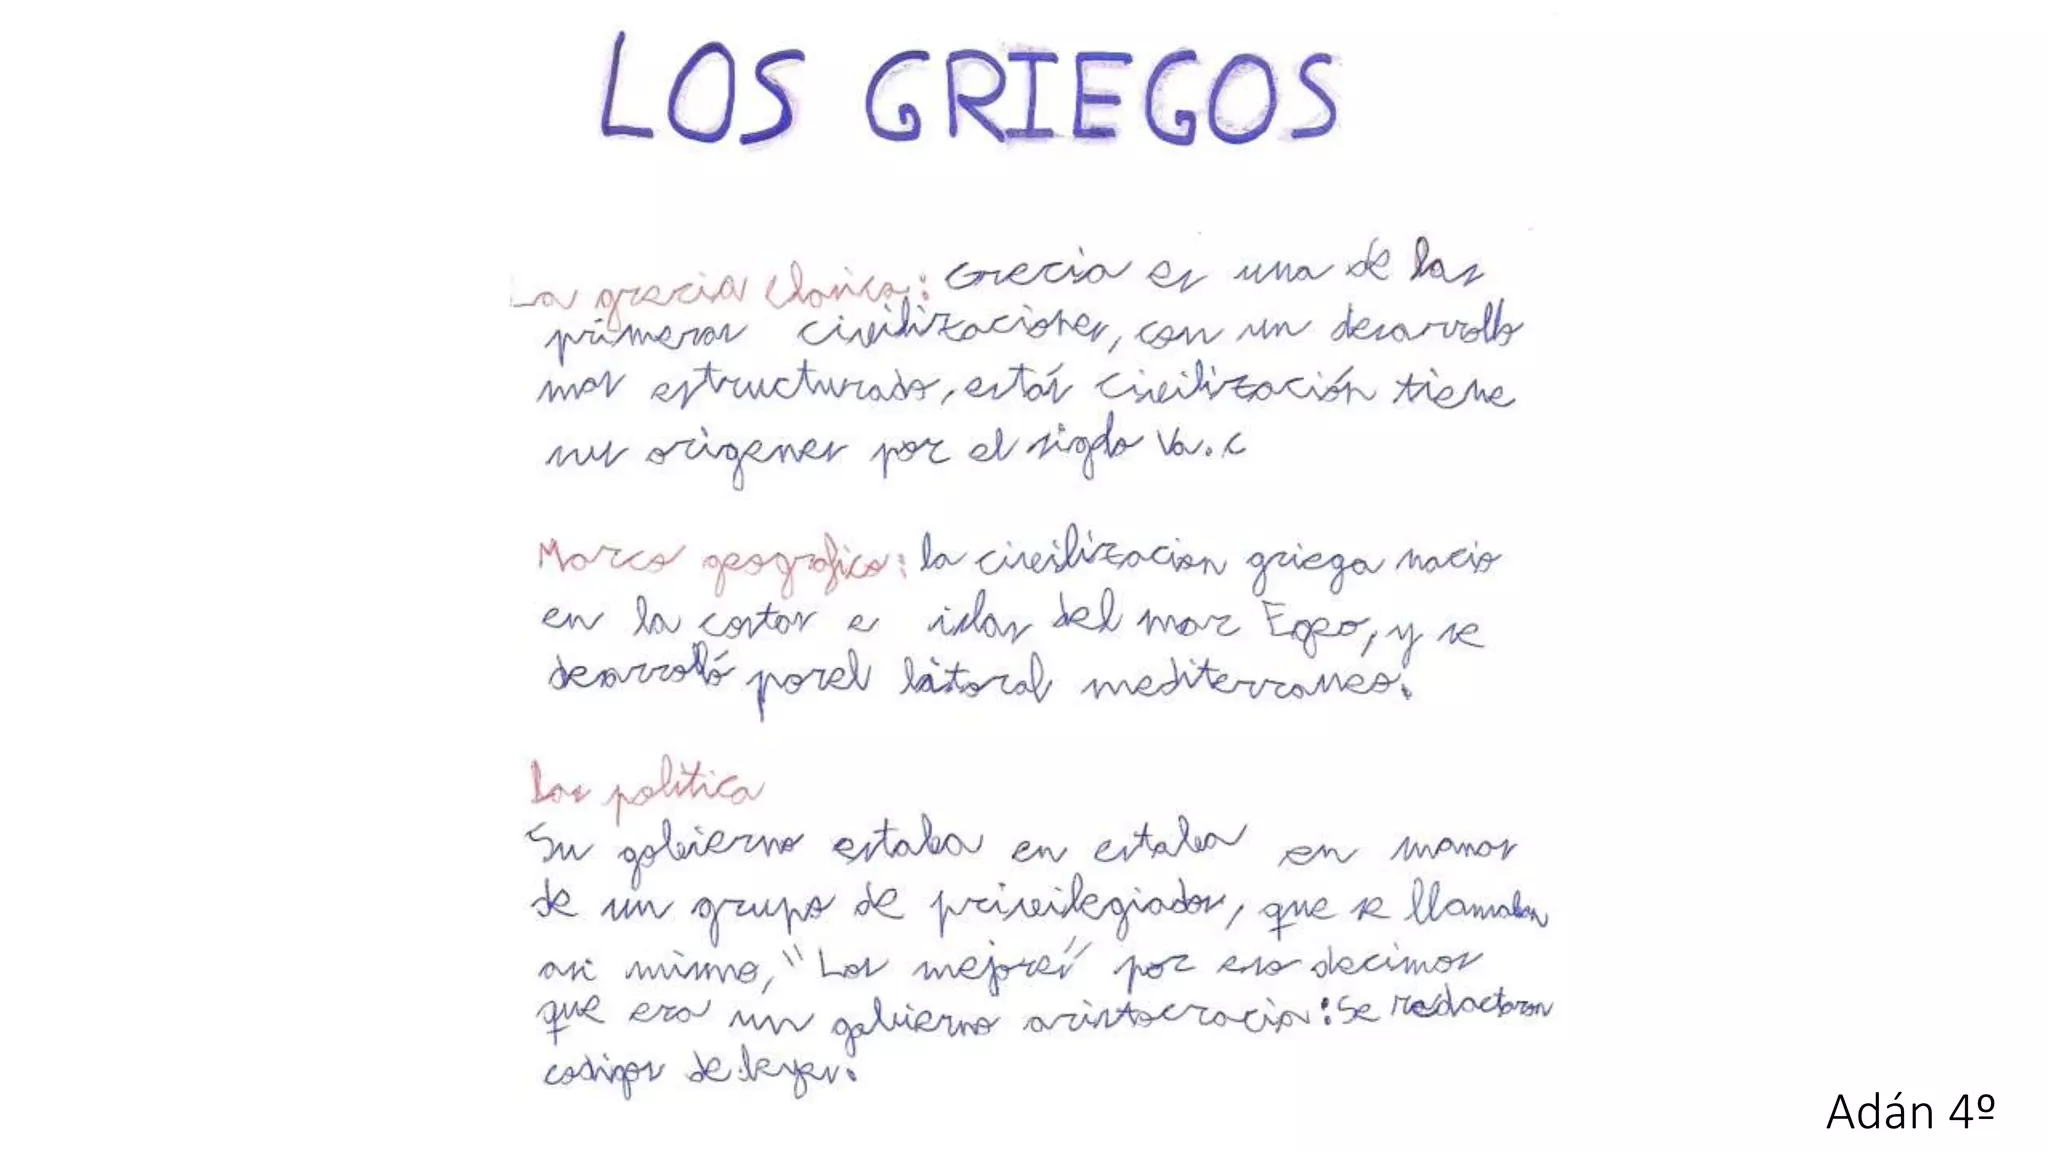 LOS GRIEGOS
La grecia clasica: Grecia es una de las
primeras civilizaciones, con un desarrollo
mas estructurado, estás civilización tiene
sus origenes por el siglo Va.c
Marco geografico: la civilizacion griega nacio
en la costas e islas del mar Egeo, y se
desarrolló porel litoral mediterraneo.
Las politica
Su gobierno estaba en estaba en manos
de un grupo de privilegiados, que se llamaban
asi mismo, "Los mejores" por eso decimos
que era un gobierno aristocracia: Se redactaron
codigos de leyes.
Adán 4º